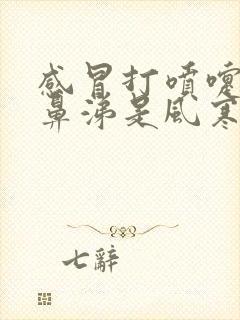 感冒打噴嚏
鼻涕是風寒
七辭